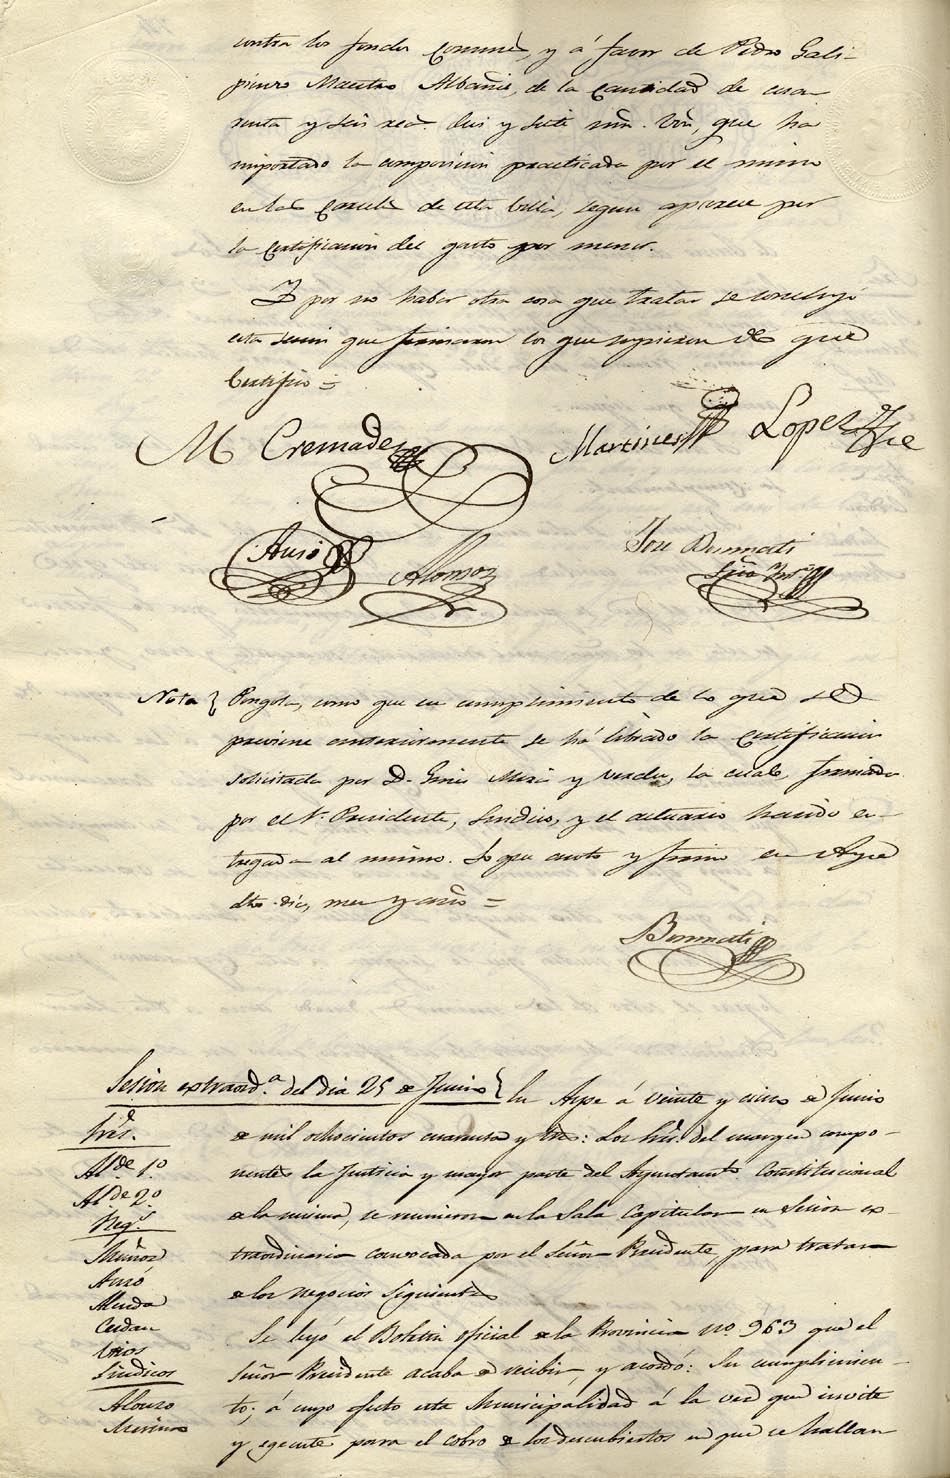 contra los fondos Comunes, y á favor de Pedro Gali-
pienzo Maestro Albañil, de la cantidad de cua-
renta y seis rs. diez y siete mrs. Von, que ha
importado la composicion practicada por el mismo
en las Carceles de esta Villa, segun aparece por
la Certificacion del gasto por menor.
Y por no haber otra cosa que tratar se concluyó
esta sesion que firmaron los que supieron de que
Certifico =
M Cremades
Martines
Lopez
Auso
Alonso
Jose Bermati
Srio Intº
Nota } Pongola, como que en cumplimiento de lo que se
previene anteriormente se há librado la Certificacion
solicitada por D. Gines Mira y Verdu, la cual, firmada
por el Sr. Presidente, Sindico, y el actuario ha sido en-
tregada al mismo. Lo que anoto y firmo en Aspe
dho dia, mes y año =
Bermati
Sesion extraordª. del dia 25 de Junio } En Aspe á veinte y cinco de Junio
Sres.
Alde 1º
Alde 2º
Regs.
Muñoz
Auzó
Almda
Cerdan
Sindicos
Alonso
Merino
de mil ochocientos cuarenta y tres: Los Sres. del margen compo-
nentes la Justicia y mayor parte del Ayuntamto. Constitucional
de la misma, se reunieron en la Sala Capitular en Sesion ex-
traordinaria convocada por el Señor Presidente, para tratar
de los negocios siguientes
Se leyó el Boletin oficial de la Provincia nº 963 que el
Señor Presidente acaba de recibir, y acordó: Su cumplimien-
to; á cuyo efecto esta Municipalidad á la vez que invite
y egecute para el cobro de los descubiertos en que se hallan